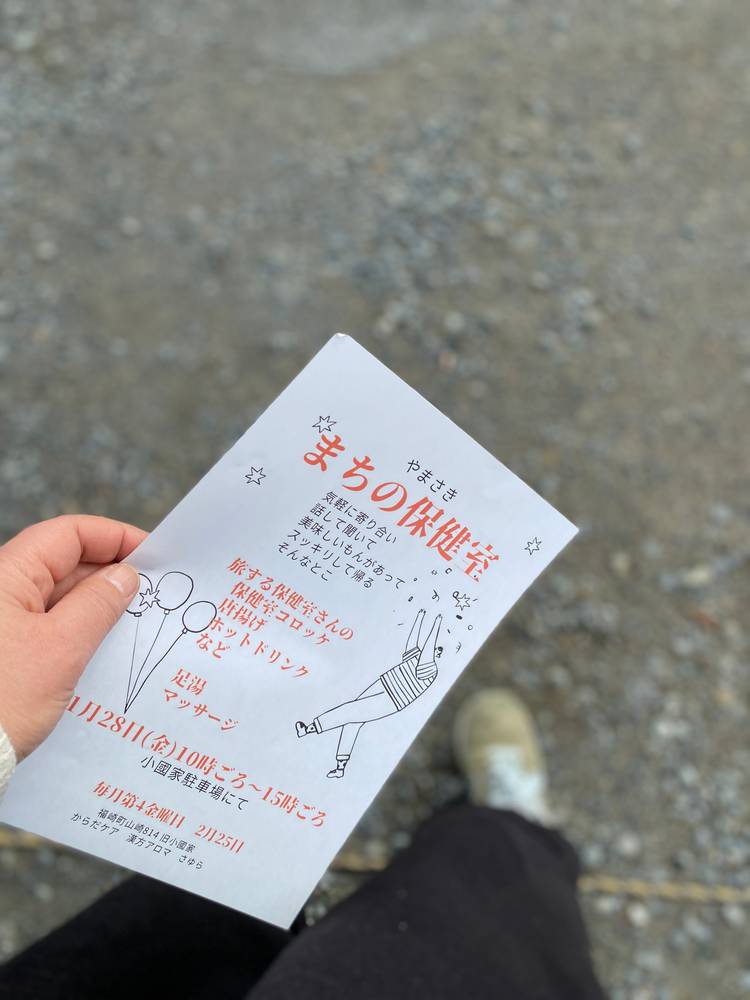 やまさき
まちの保健室
気軽に寄り合い
話して聞いて
美味しいもんがあって
スッキリして帰る
そんなとこ
旅する保健室さんの
保健室コロッケ
唐揚げ
ホットドリンク
など
足湯
マッサージ
1月28日(金)10時ごろ〜15時ごろ
小國家駐車場にて
毎月第4金曜日 2月25日
福崎町山崎814 旧小國家
からだケア 漢方アロマ さゆら